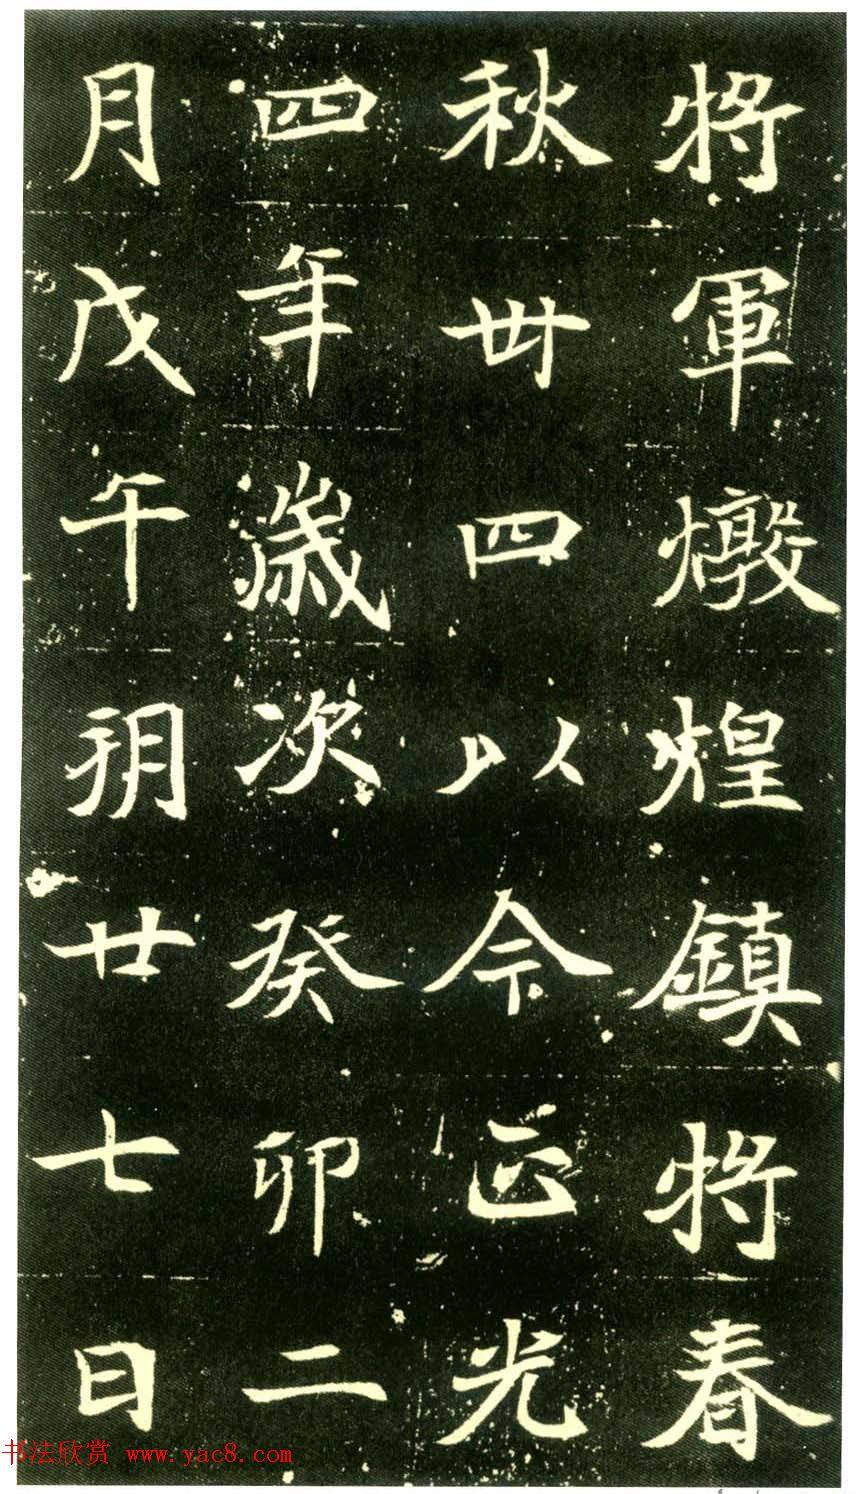 將軍燉煌鎮將春
秋卅四以令正光
四年歲次癸卯二
月戊午朔廿七日
书法欣赏 www.yac8.com